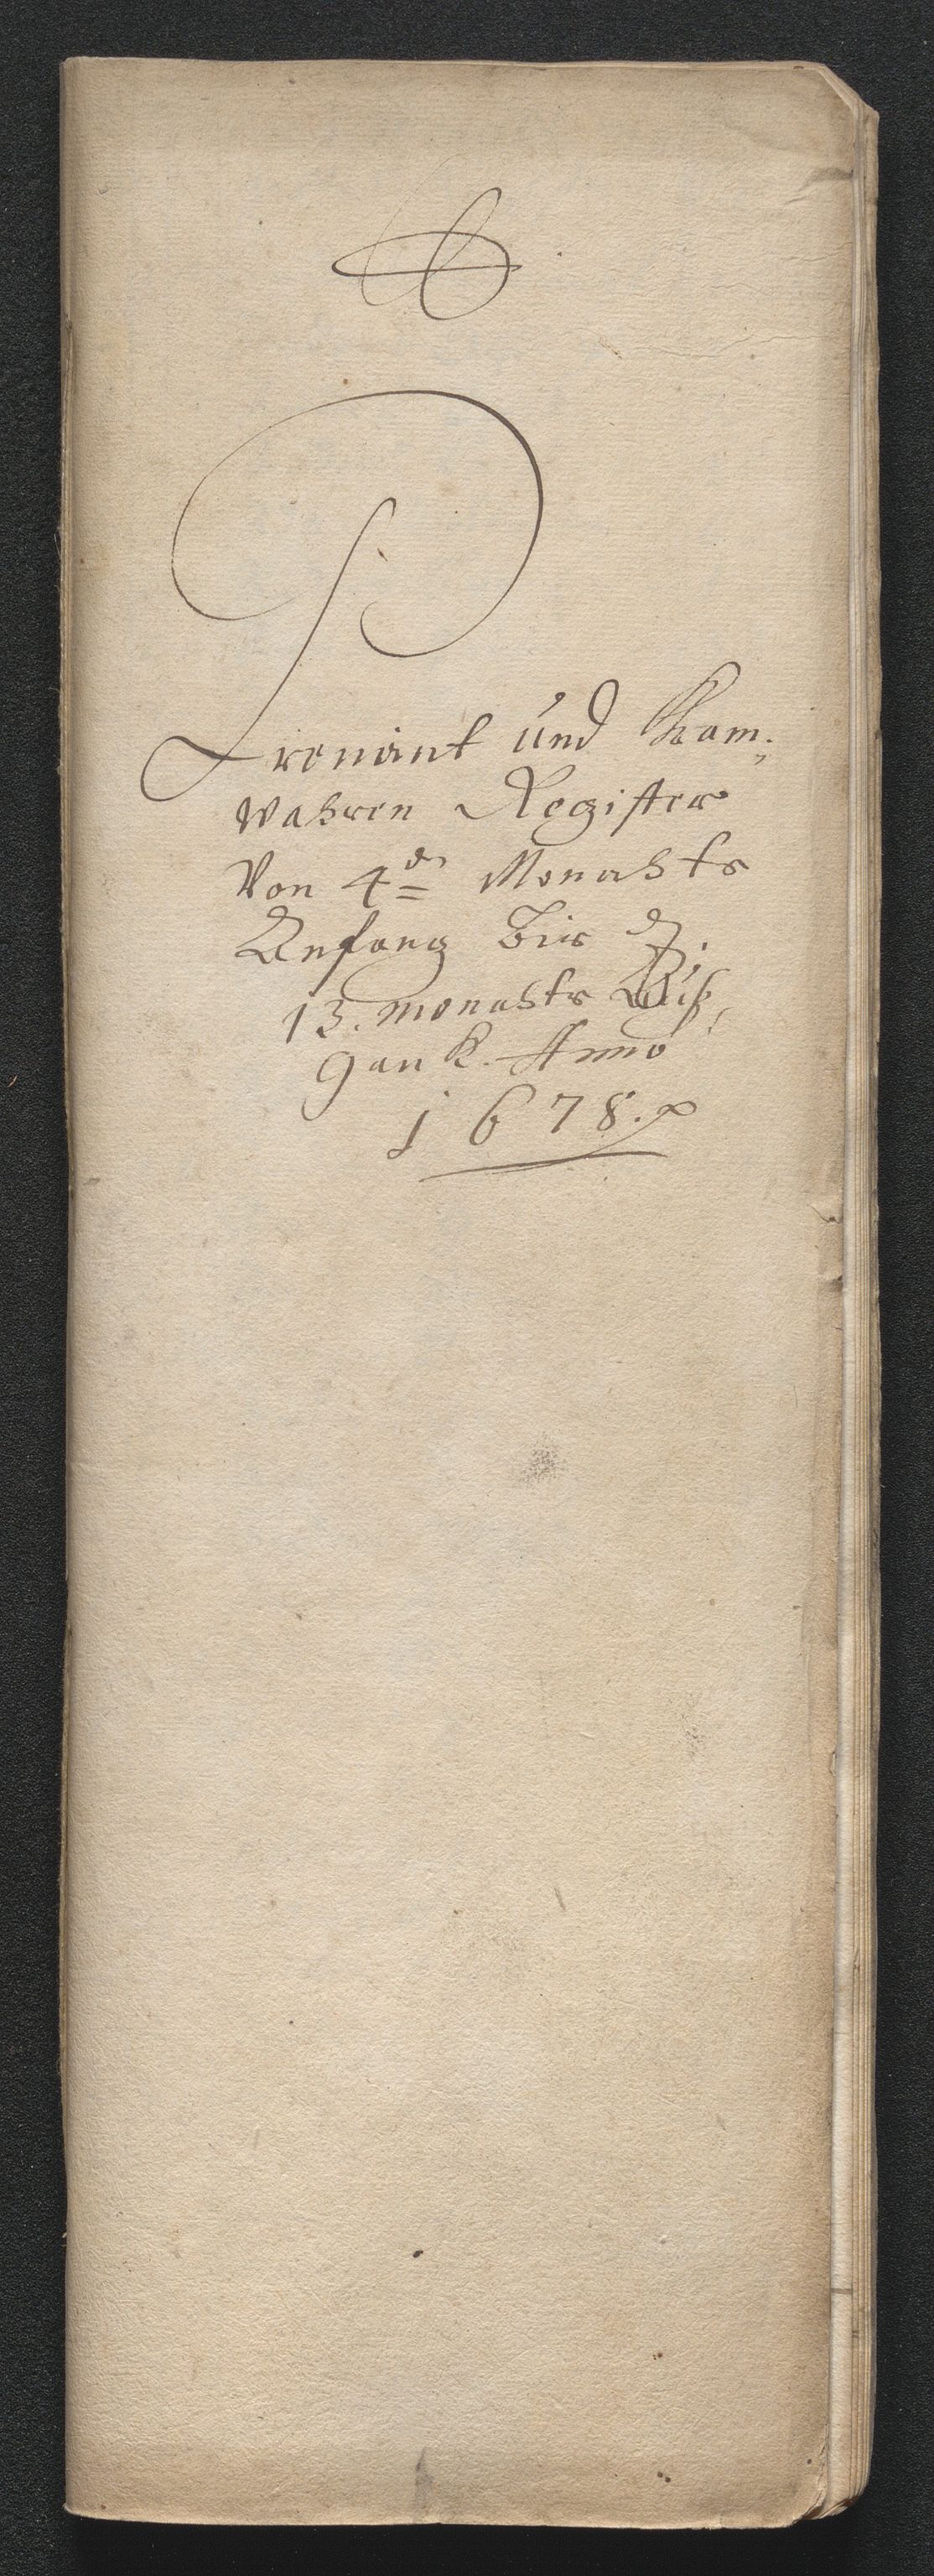 Províant und Kram¬
Wahren Register
Von 4den Monahts
Anfang Bis den
13. Monahts Auß¬
gank. Anno
1678.